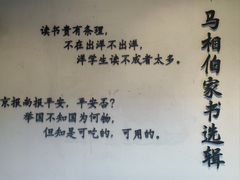 马相伯家书选辑
读书贵有条理，
不在出洋不出洋，
洋学生读不成者太多。
京报南报平安，平安否？
举国不知国为何物，
但知是可吃的，可用的。